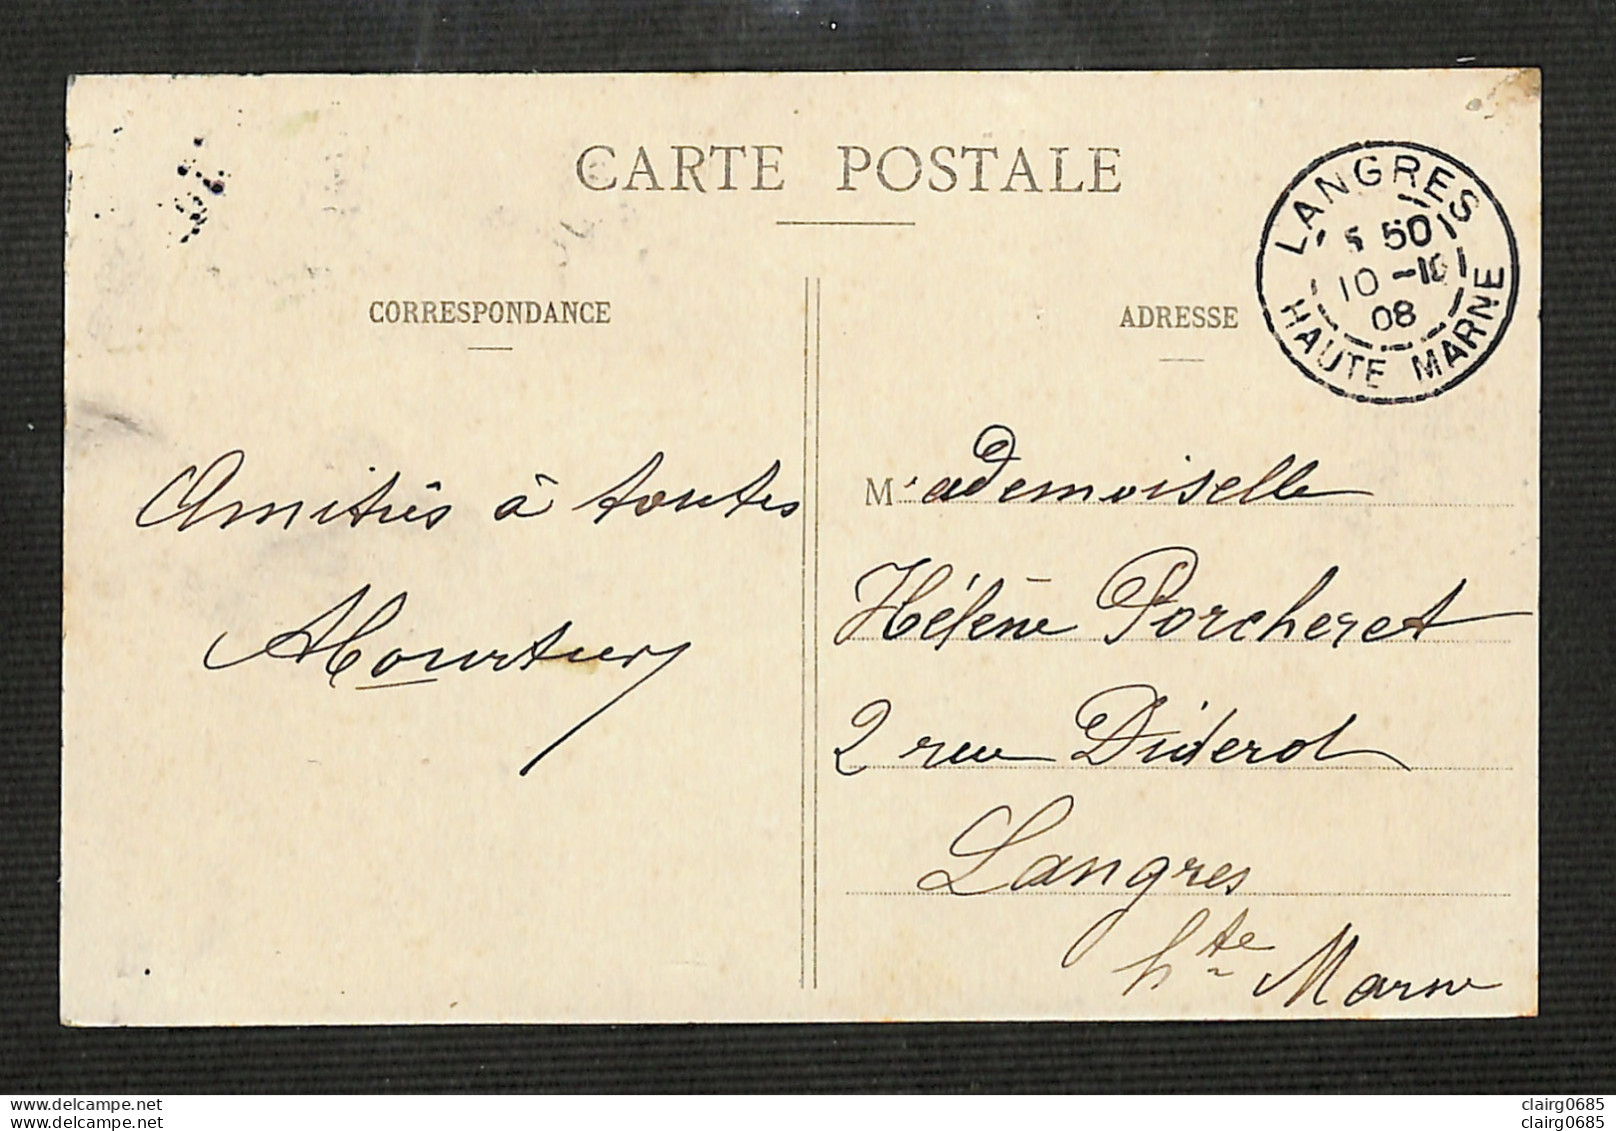 CARTE POSTALE
CORRESPONDANCE
ADRESSE
LANGRES
5 50
10 -10
08
HAUTE MARNE
Amitiés à toutes
M'ademoiselle
Hélène Porcheret
2 rue Diderot
Langres
hte Marne
www.delcampe.net
www.delcampe.net
clairg0685
clairg0685